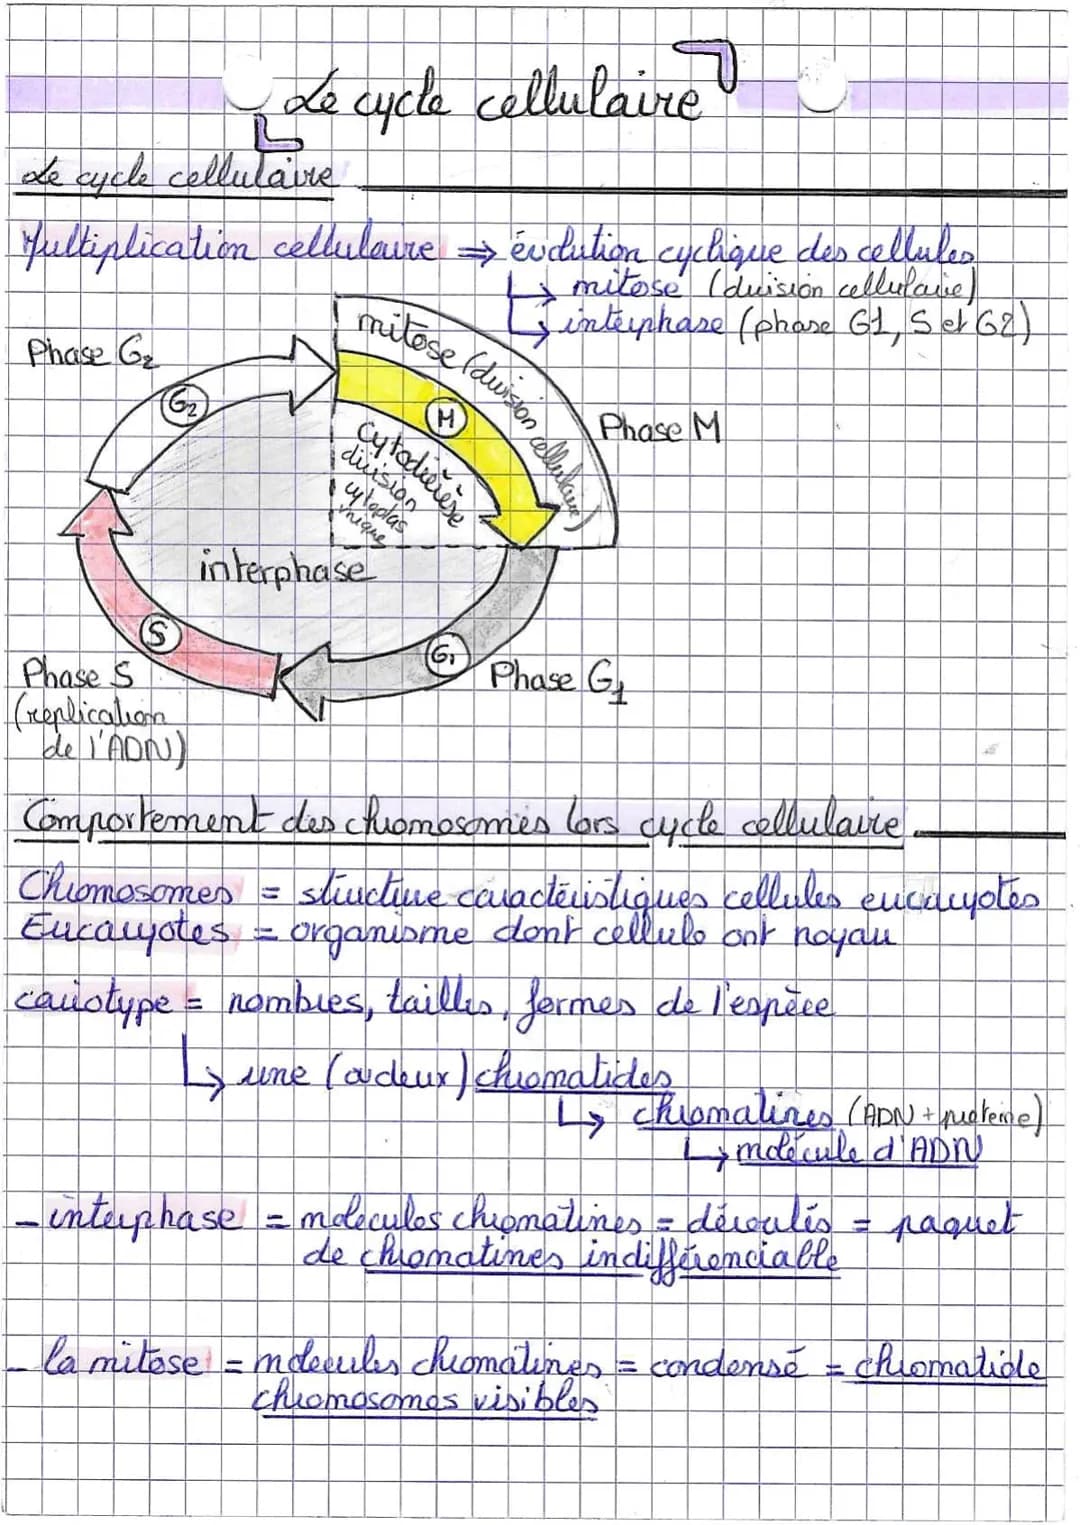 Le cycle cellulaire
Le cycle cellulaire
Multiplication cellulaire ⇒ évolution cyclique des cellules
↳ mitose (division cellulaire)
↳ interphase (phase G1, S et G2)
Phase G2
G2
mitose (division cellulaire)
M
Phase M
Cytodiérèse
division
cytoplas
mique
interphase
S
G1
Phase S
(replication
de l'ADN)
Phase G1
Comportement des chromosomes lors cycle cellulaire
Chromosomes = structure caractéristiques cellules eucaryotes
Eucaryotes = organisme dont cellule ont noyau
cariotype = nombres, tailles, formes de l'espèce
↳ une (ou deux) chromatides
↳ chromatines (ADN + proteine)
↳ molécule d'ADN
- interphase = molécules chromatines = déroulés = paquet
de chromatines indifférenciable
- la mitose = molécules chromatines = condensé = chromatide
chromosomes visibles